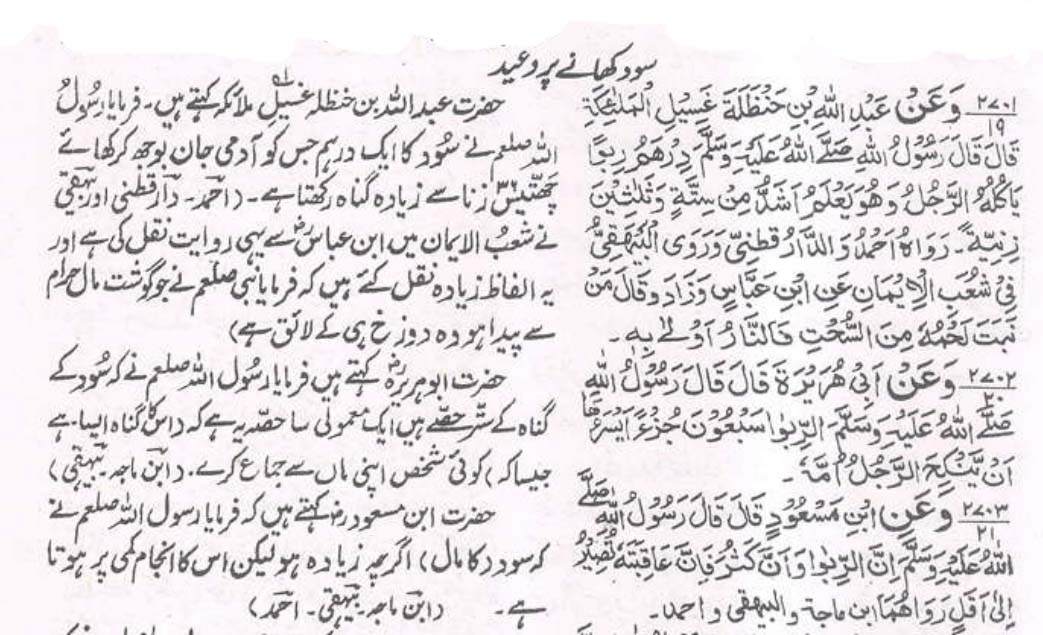 سود کھانے پر وعید
۲۷۰۱ وَعَنْ عَبْدِ اللّٰهِ بْنِ حَنْظَلَةَ غَسِيْلِ الْمَلٰئِكَةِ
۱۹
قَالَ قَالَ رَسُوْلُ اللّٰهِ صَلَّے اللّٰهُ عَلَيْهِ وَسَلَّمَ دِرْهَمُ رِبوًا
يَأْكُلُهُ الرَّجُلُ وَهُوَ يَعْلَمُ اَشَدُّ مِنْ سِتَّةٍ وَّثَلٰثِيْنَ
زِنْيَةً۔ رَوَاهُ اَحْمَدُ وَالدَّارُ قُطْنِيُّ وَرَوَى الْبَيْهَقِيُّ
فِيْ شُعَبِ الْاِيْمَانِ عَنِ ابْنِ عَبَّاسٍ وَّزَادَ وَقَالَ مَنْ
نَبَتَ لَحْمُهٗ مِنَ السُّحْتِ فَالنَّارُ اَوْلٰى بِهٖ۔
۲۷۰۲ وَعَنْ اَبِيْ هُرَيْرَةَ قَالَ قَالَ رَسُوْلُ اللّٰهِ
۲۰
صَلَّے اللّٰهُ عَلَيْهِ وَسَلَّمَ الرِّبٰوا سَبْعُوْنَ جُزْءًا اَيْسَرُهَا
اَنْ يَّنْكِحَ الرَّجُلُ اُمَّهٗ۔
۲۷۰۳ وَعَنِ ابْنِ مَسْعُوْدٍ قَالَ قَالَ رَسُوْلُ اللّٰهِ صَلَّے
۲۱
اللّٰهُ عَلَيْهِ وَسَلَّمَ اِنَّ الرِّبٰوا وَاِنْ كَثُرَ فَاِنَّ عَاقِبَتَهٗ تَصِيْرُ
اِلٰى اَقَلَّ رَوَاهُمَا ابن ماجة والبيهقى و احمد۔
حضرت عبد اللہ بن حنظلہ غسیل ملائکہ کہتے ہیں۔ فرمایا رسُولُ
اللہ صلعم نے سُود کا ایک درہم جس کو آدمی جان بوجھ کر کھائے
چھتیس ۳۶ زنا سے زیادہ گناہ رکھتا ہے۔ (احمد۔ دار قطنی اور بیہقی
نے شعبُ الایمان میں ابن عباس رض سے یہی روایت نقل کی ہے اور
یہ الفاظ زیادہ نقل کئے ہیں کہ فرمایا نبی صلعم نے جو گوشت مال حرام
سے پیدا ہو وہ دوزخ ہی کے لائق ہے)
حضرت ابو ہریرہ رض کہتے ہیں فرمایا رسُول اللہ صلعم نے کہ سُود کے
گناہ کے ستّر حصّے ہیں ایک معمولی سا حصّہ یہ ہے کہ (اس کا گناہ ایسا ہے
جیسا کہ) کوئی شخص اپنی ماں سے جماع کرے۔ (ابن ماجہ۔ بیہقی)
حضرت ابن مسعود رض کہتے ہیں کہ فرمایا رسول اللہ صلعم نے
کہ سود (کا مال) اگرچہ زیادہ ہو لیکن اس کا انجام کمی پر ہوتا
ہے۔ (ابن ماجہ۔ بیہقی۔ احمد)